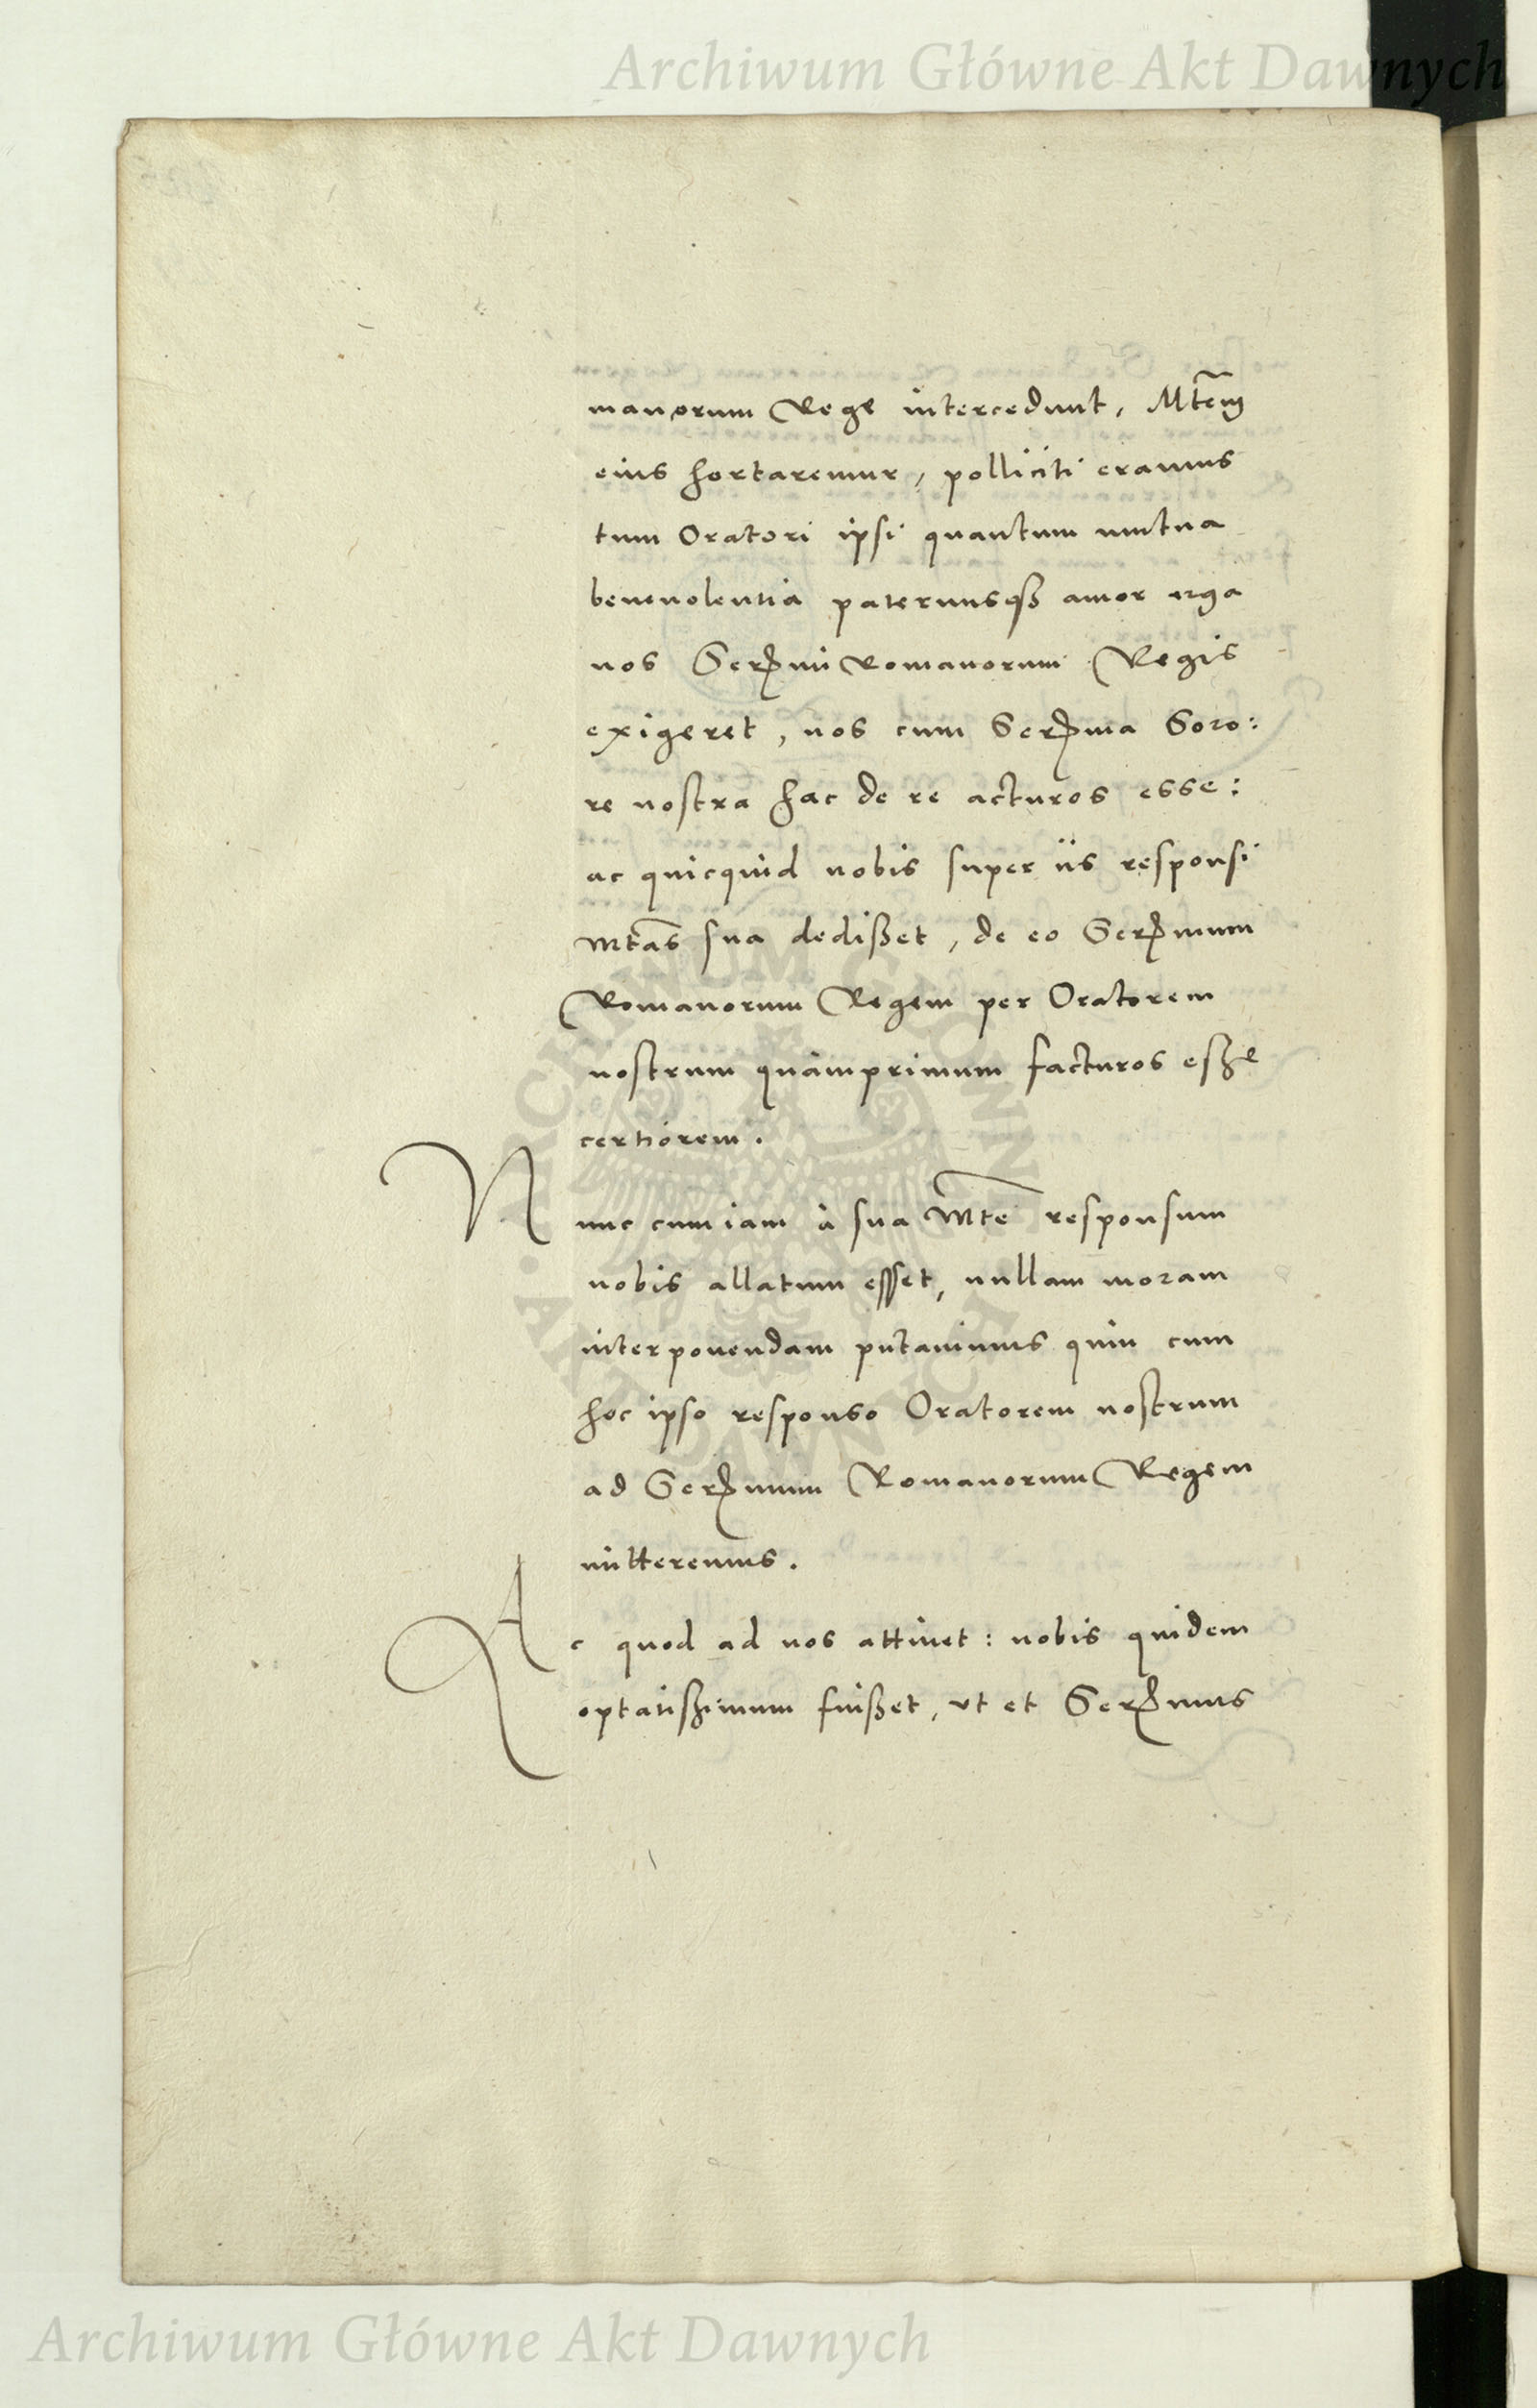 Archiwum Główne Akt Dawnych
manorum Rege intercedunt, Mtem
eius hortaremur, polliciti eramus
tum Oratori ipsi quantum mutua
beneuolentia paternusq₃ amor erga
nos Sermi Romanorum Regis
exigeret, nos cum Serma Soro:
re nostra hac de re acturos esse:
ac quicquid nobis super iis responsi
Mtas sua dedisset, de eo Sermum
Romanorum Regem per Oratorem
nostrum quamprimum facturos esse
certiorem.
Nunc cum iam à sua Mte responsum
nobis allatum esset, nullam moram
interponendam putauimus quin cum
hoc ipso responso Oratorem nostrum
ad Sermum Romanorum Regem
mitteremus.
Ac quod ad nos attinet: nobis quidem
optatissimum fuisset, vt et Sermus
ARCHIWUM GŁÓWNE AKT DAWNYCH
Archiwum Główne Akt Dawnych